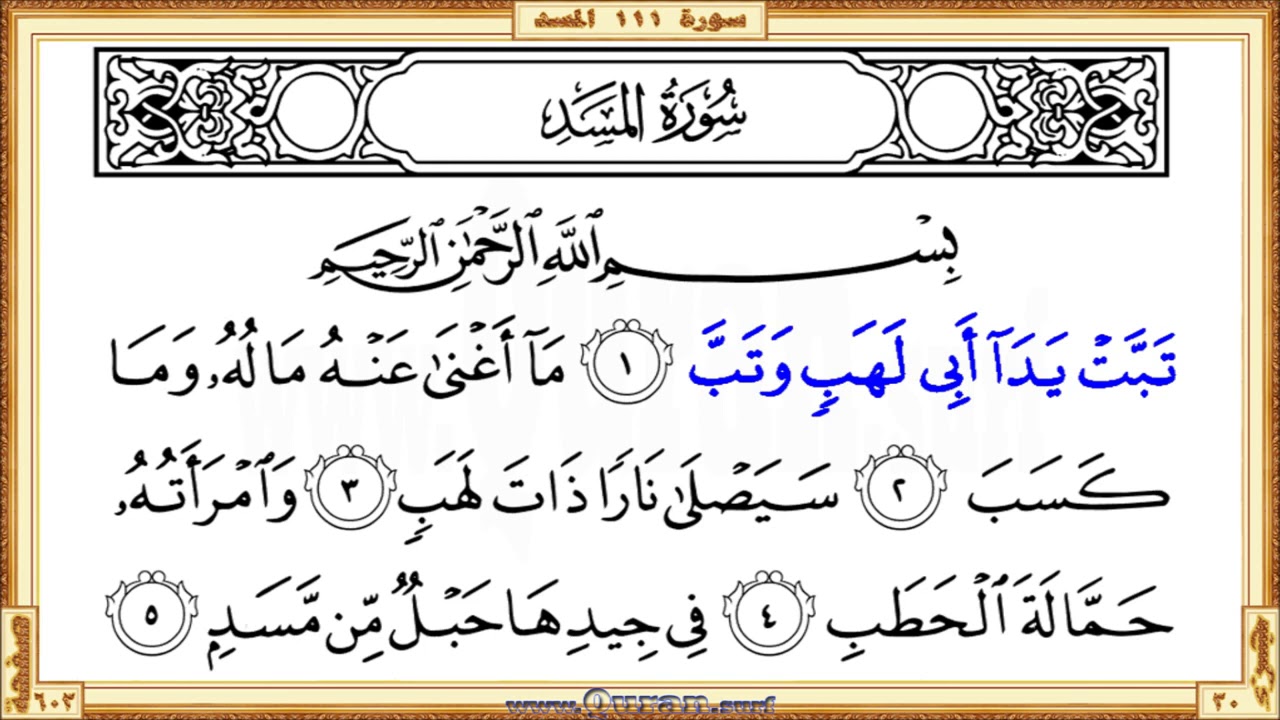 سورة ١١١ المسد
سُورَةُ المَسَدِ
بِسْمِ ٱللَّهِ ٱلرَّحْمَٰنِ ٱلرَّحِيمِ
تَبَّتْ يَدَآ أَبِى لَهَبٍ وَتَبَّ ١ مَآ أَغْنَىٰ عَنْهُ مَالُهُۥ وَمَا
كَسَبَ ٢ سَيَصْلَىٰ نَارًا ذَاتَ لَهَبٍ ٣ وَٱمْرَأَتُهُۥ
حَمَّالَةَ ٱلْحَطَبِ ٤ فِى جِيدِهَا حَبْلٌ مِّن مَّسَدٍۭ ٥
صفحة ٦٠٣
www.Quran.surf
جزء ٣٠